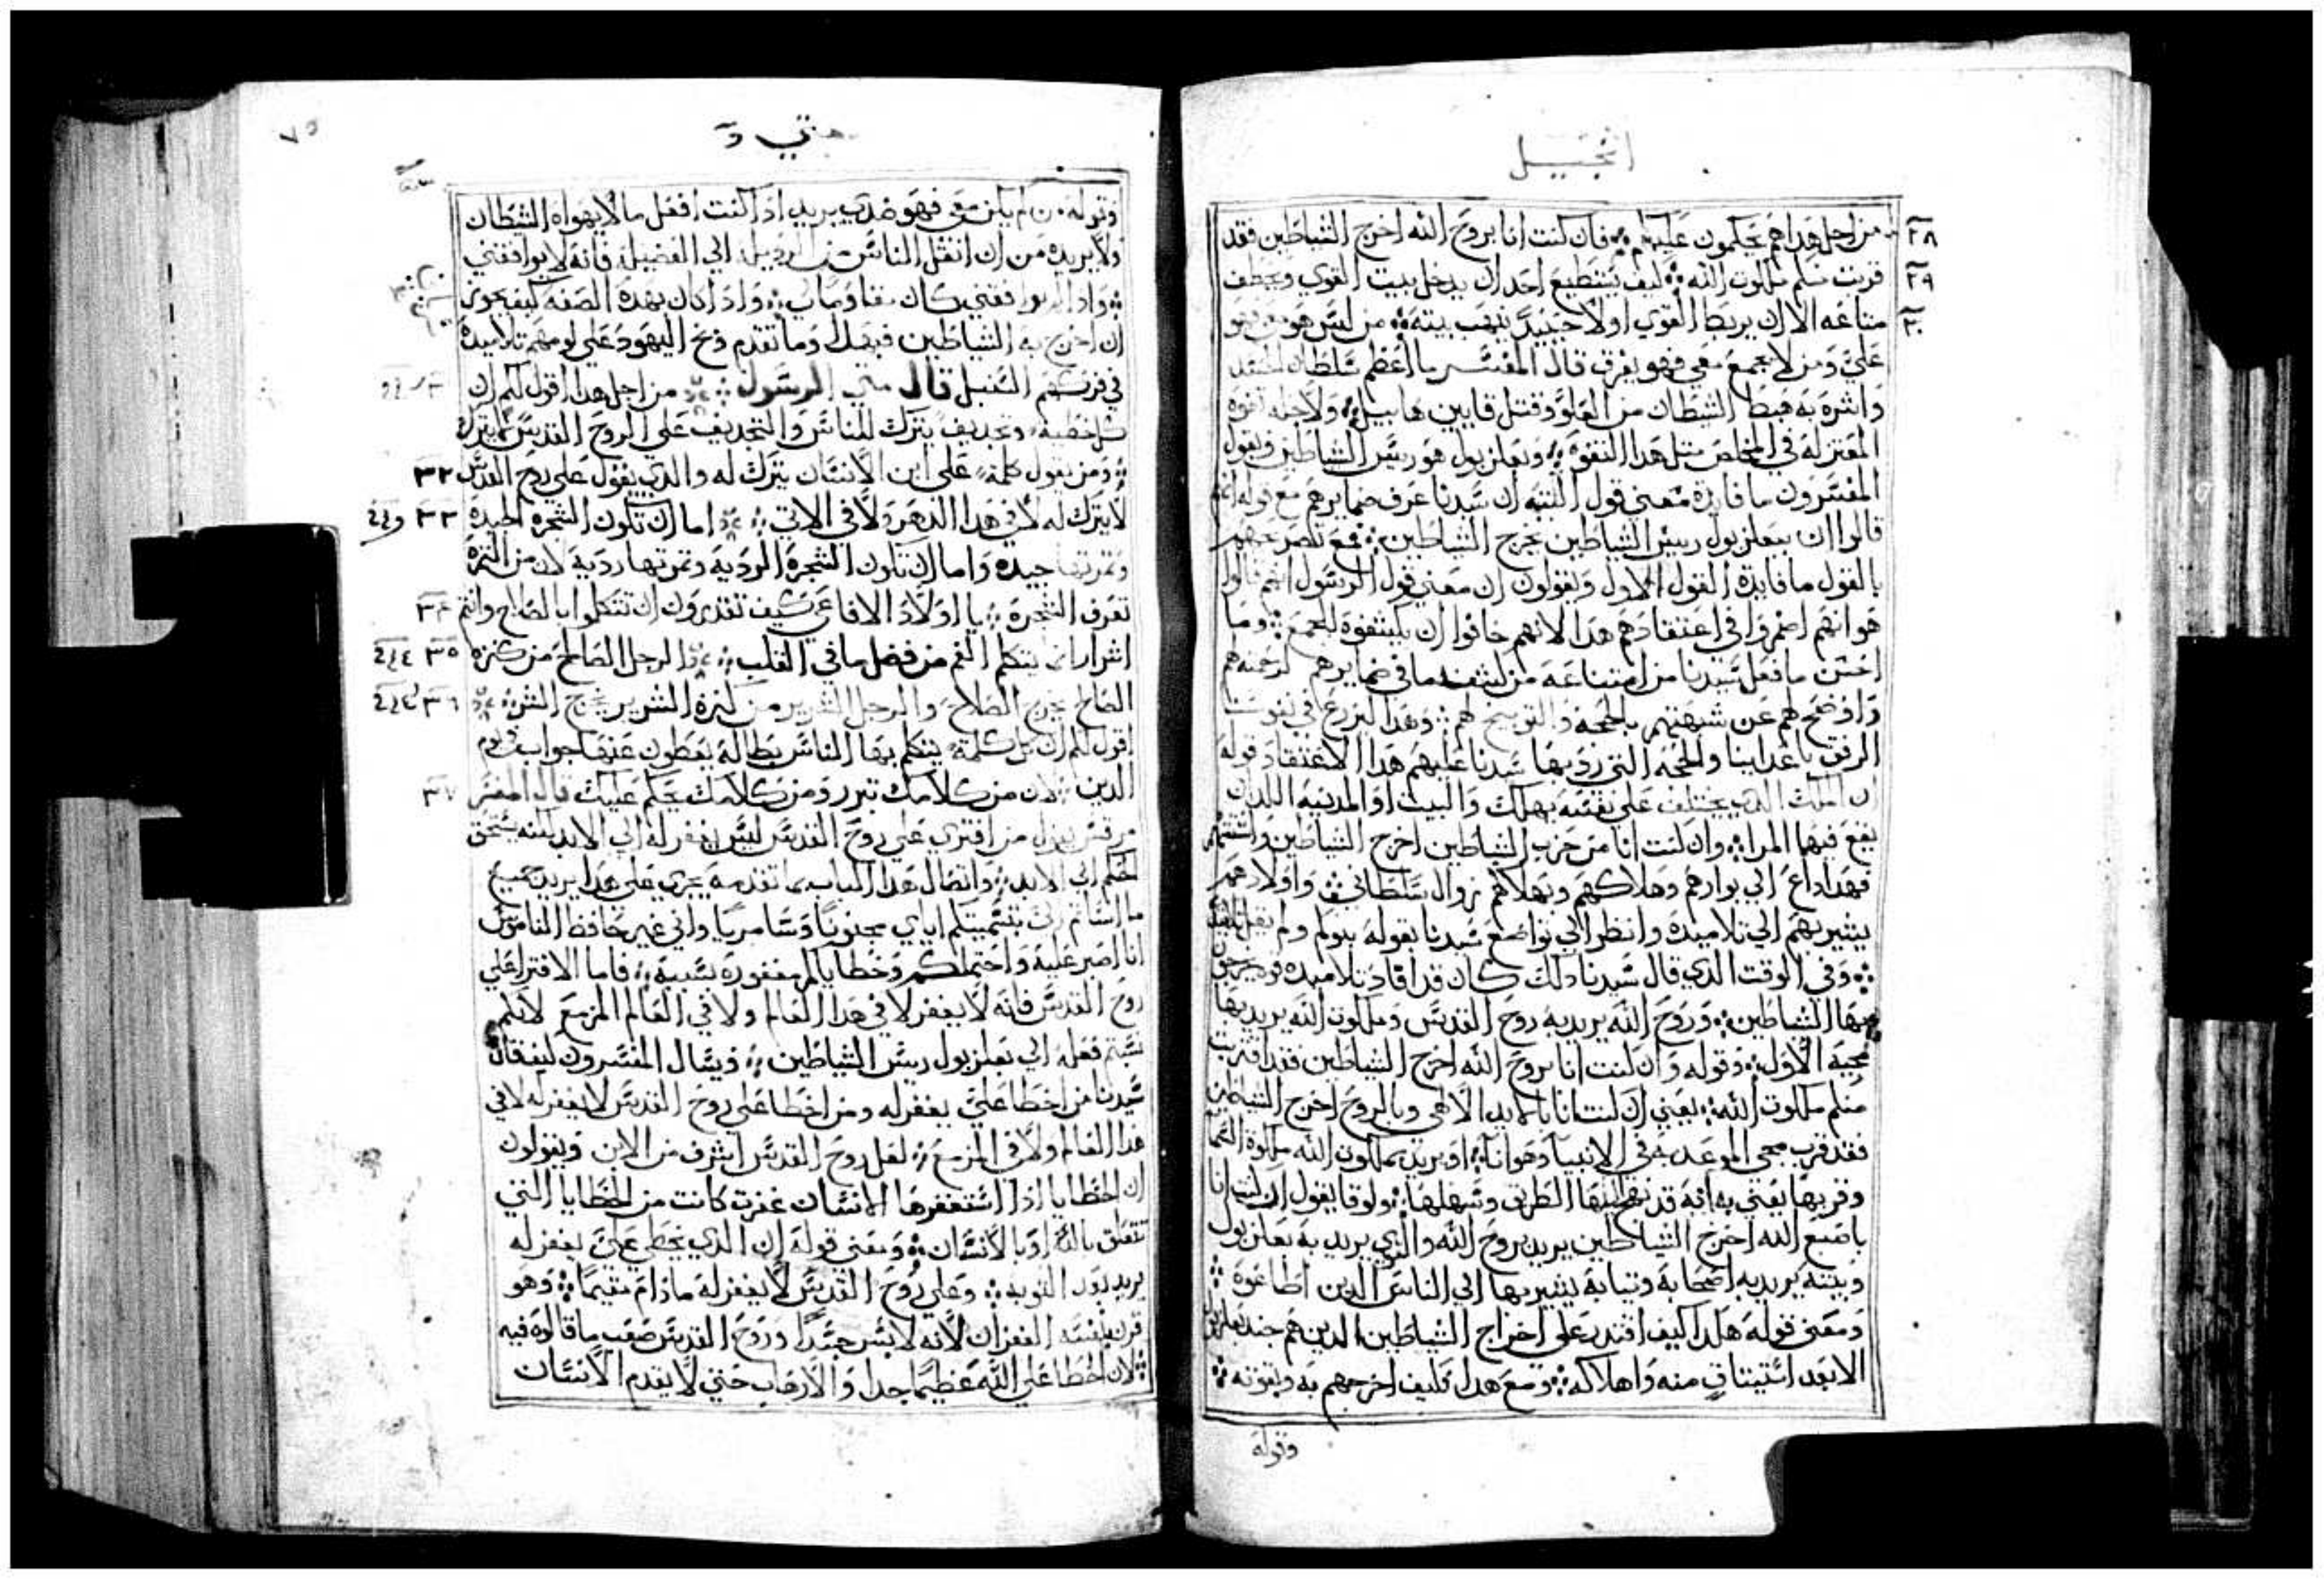 انجيل
من اجل هذا هم يحكمون عليكم ؞ فان كنت انا بروح الله اخرج الشياطين فقد
٢٨
قربت منكم ملكوت الله ؞ كيف يستطيع احد ان يدخل بيت القوي ويخطف
٢٩
متاعه الا ان يربط القوي اولا حينيد ينهب بيته ؞ من ليس هو معي فهو
٣٠
علي ومن لا يجمع معي فهو يفرق قال المفسر ما اعظم سلطان الحسد
وانثره به هبط الشيطان من العلو وقتل قايين هابيل ؞ ولاجله تفوه
المعتزله في المخلص مثل هذا التفوه ؞ وبعلزبول هو ريس الشياطين ويقول
المفسرون ما فايدة معني قول التنبه ان سيدنا عرف ضمايرهم مع قوله انهم
قالوا ان ببعلزبول رييس الشياطين يخرج الشياطين ؞ فمع تصريحهم
بالقول ما فايدة القول الاول ويقولون ان معني قول الرسول انهم قالوا
هو انهم اضمروا في اعتقادهم هذا لانهم خافوا ان يكشفوه للجمع ؞ وما
احسن ما فعل سيدنا من امتناعه من كشف ما في ضمايرهم لرحمته لهم
واوضح لهم عن شبهتهم بالحجه والتوبيخ لهم ؞ وهذا ليزرع في نفوسنا
الرفق باعداينا والحجه التي رد بها سيدنا عليهم هذا الاعتقاد قوله
ان الملك الذي يختلف علي نفسه يهلك والبيت او المدينه اللذان
يقع فيهما المرا ؞ وان كنت انا من حزب الشياطين اخرج الشياطين واشتتهم
فهذا داع الي بوارهم وهلاكهم وبهلاكهم زوال سلطاني ؞ واولادهم
يشير بهم الي تلاميذه وانظر الي تواضع سيدنا بقوله بنوكم ولم يقل تلاميذي
؞ وفي الوقت الذي قال سيدنا ذلك كان قد افاد تلاميذه قوة يخرجون
بها الشياطين ؞ وروح الله يريد به روح القدس وملكوت الله يريد بها
مجيه الاول ؞ وقوله وان كنت انا بروح الله اخرج الشياطين فقد اقتربت
منكم ملكوت الله ؞ يعني ان كنت انا بالايد الالاهي وبالروح اخرج الشياطين
فقد قرب مجي الموعد به في الانبيا وهو انا ؞ او يريد بملكوت الله ملكوة السما
وقربها يعني به انه قد نهج لها الطرق وسهلها ؞ ولوقا يقول ان كنت انا
باصبع الله اخرج الشياطين يريد بروح الله والذي يريد به بعلزبول
وبيته يريد به اصحابه وثيابه يشير بها الي الناس الذين اطاعوه ؞
ومعني قوله هكذا كيف اقتدر علي اخراج الشياطين الذين هم جند بعلزبول
الا بعد استيثاق منه واهلاكه ؞ ومع هذا فكيف اخرجهم به وبقوته ؞
وقوله
متي
٧٥
وقوله من لم يكن معي فهو ضدي يريد اذا كنت افعل ما لا يهواه الشيطان
ولا يريده من ان انقل الناس من الرذيلة الي الفضيلة فانه لا يوافقني
؞ واذا لم يوافقني كان مقاومًا لي ؞ واذا كان بهذه الصفه كيف يجوز
ان اخرج به الشياطين فبهذا وما تقدم وبخ اليهود علي لومهم تلاميذه
في فركهم السنبل قال متي الرسول ؞ من اجل هذا اقول لكم ان
كل خطيه وتجديف يترك للناس والتجديف علي الروح القدس لا يترك
؞ ومن يقول كلمة علي ابن الانسان يترك له والذي يقول علي روح القدس
٣٢
لا يترك له لا في هذا الدهر ولا في الاتي ؞ اما ان تكون الشجره الجيدة
٣٣
وثمرتها جيده واما ان تكون الشجرة الرديه وثمرتها رديه لان من الثمرة
تعرف الشجرة ؞ يا اولاد الافاعي كيف تقدرون ان تتكلموا بالصلاح وانتم
٣٤
اشرار انما يتكلم الفم من فضل ما في القلب ؞ الرجل الصالح من كنزه
٣٥
الصالح يخرج الصلاح والرجل الشرير من كنزه الشرير يخرج الشر ؞
٣٦
اقول لكم ان كل كلمة يتكلم بها الناس بطالة يعطون عنها جواب في يوم
الدين ؞ لان من كلامك تبرر ومن كلامك يحكم عليك قال المفسر
٣٧
مرقس يقول من افتري علي روح القدس ليس يغفر له الي الابد لكنه يستحق
الحكم الي الابد ؞ واتصال هذا الكتاب بما تقدمه يجري علي هذا يريد جميع
ما اسأتم الي بتسميتكم اياي مجنونًا وسامريًا واني غير حافظ الناموس
انا اصبر عليه واحتملكم وخطاياكم مغفورة بسببه ؞ فاما الافترا علي
روح القدس فانه لا يغفر لا في هذا العالم ولا في العالم المزمع لانكم
نسبتم فعله الي بعلزبول ريس الشياطين ؞ ويسال المفسرون كيف قال
سيدنا من اخطا علي يغفر له ومن اخطا علي روح القدس لا يغفر له لا في
هذا العالم ولا في المزمع ؞ لعل روح القدس اشرف من الابن ويقولون
ان الخطايا اذا استغفرها الانسان غفرت كانت من الخطايا التي
تتعلق بالله او بالانسان ؞ ومعني قوله ان الذي يخطي علي يغفر له
يريد بدون التوبه ؞ وعلي روح القدس لا يغفر له ما دام مقيمًا ؞ وهو
قرن بنفسه الغفران لانه لابس جسدًا وروح القدس صعب ما قالوه فيه
؞ لان الخطا علي الله عظيمًا جدا والارهاب حتي لا يقدم الانسان